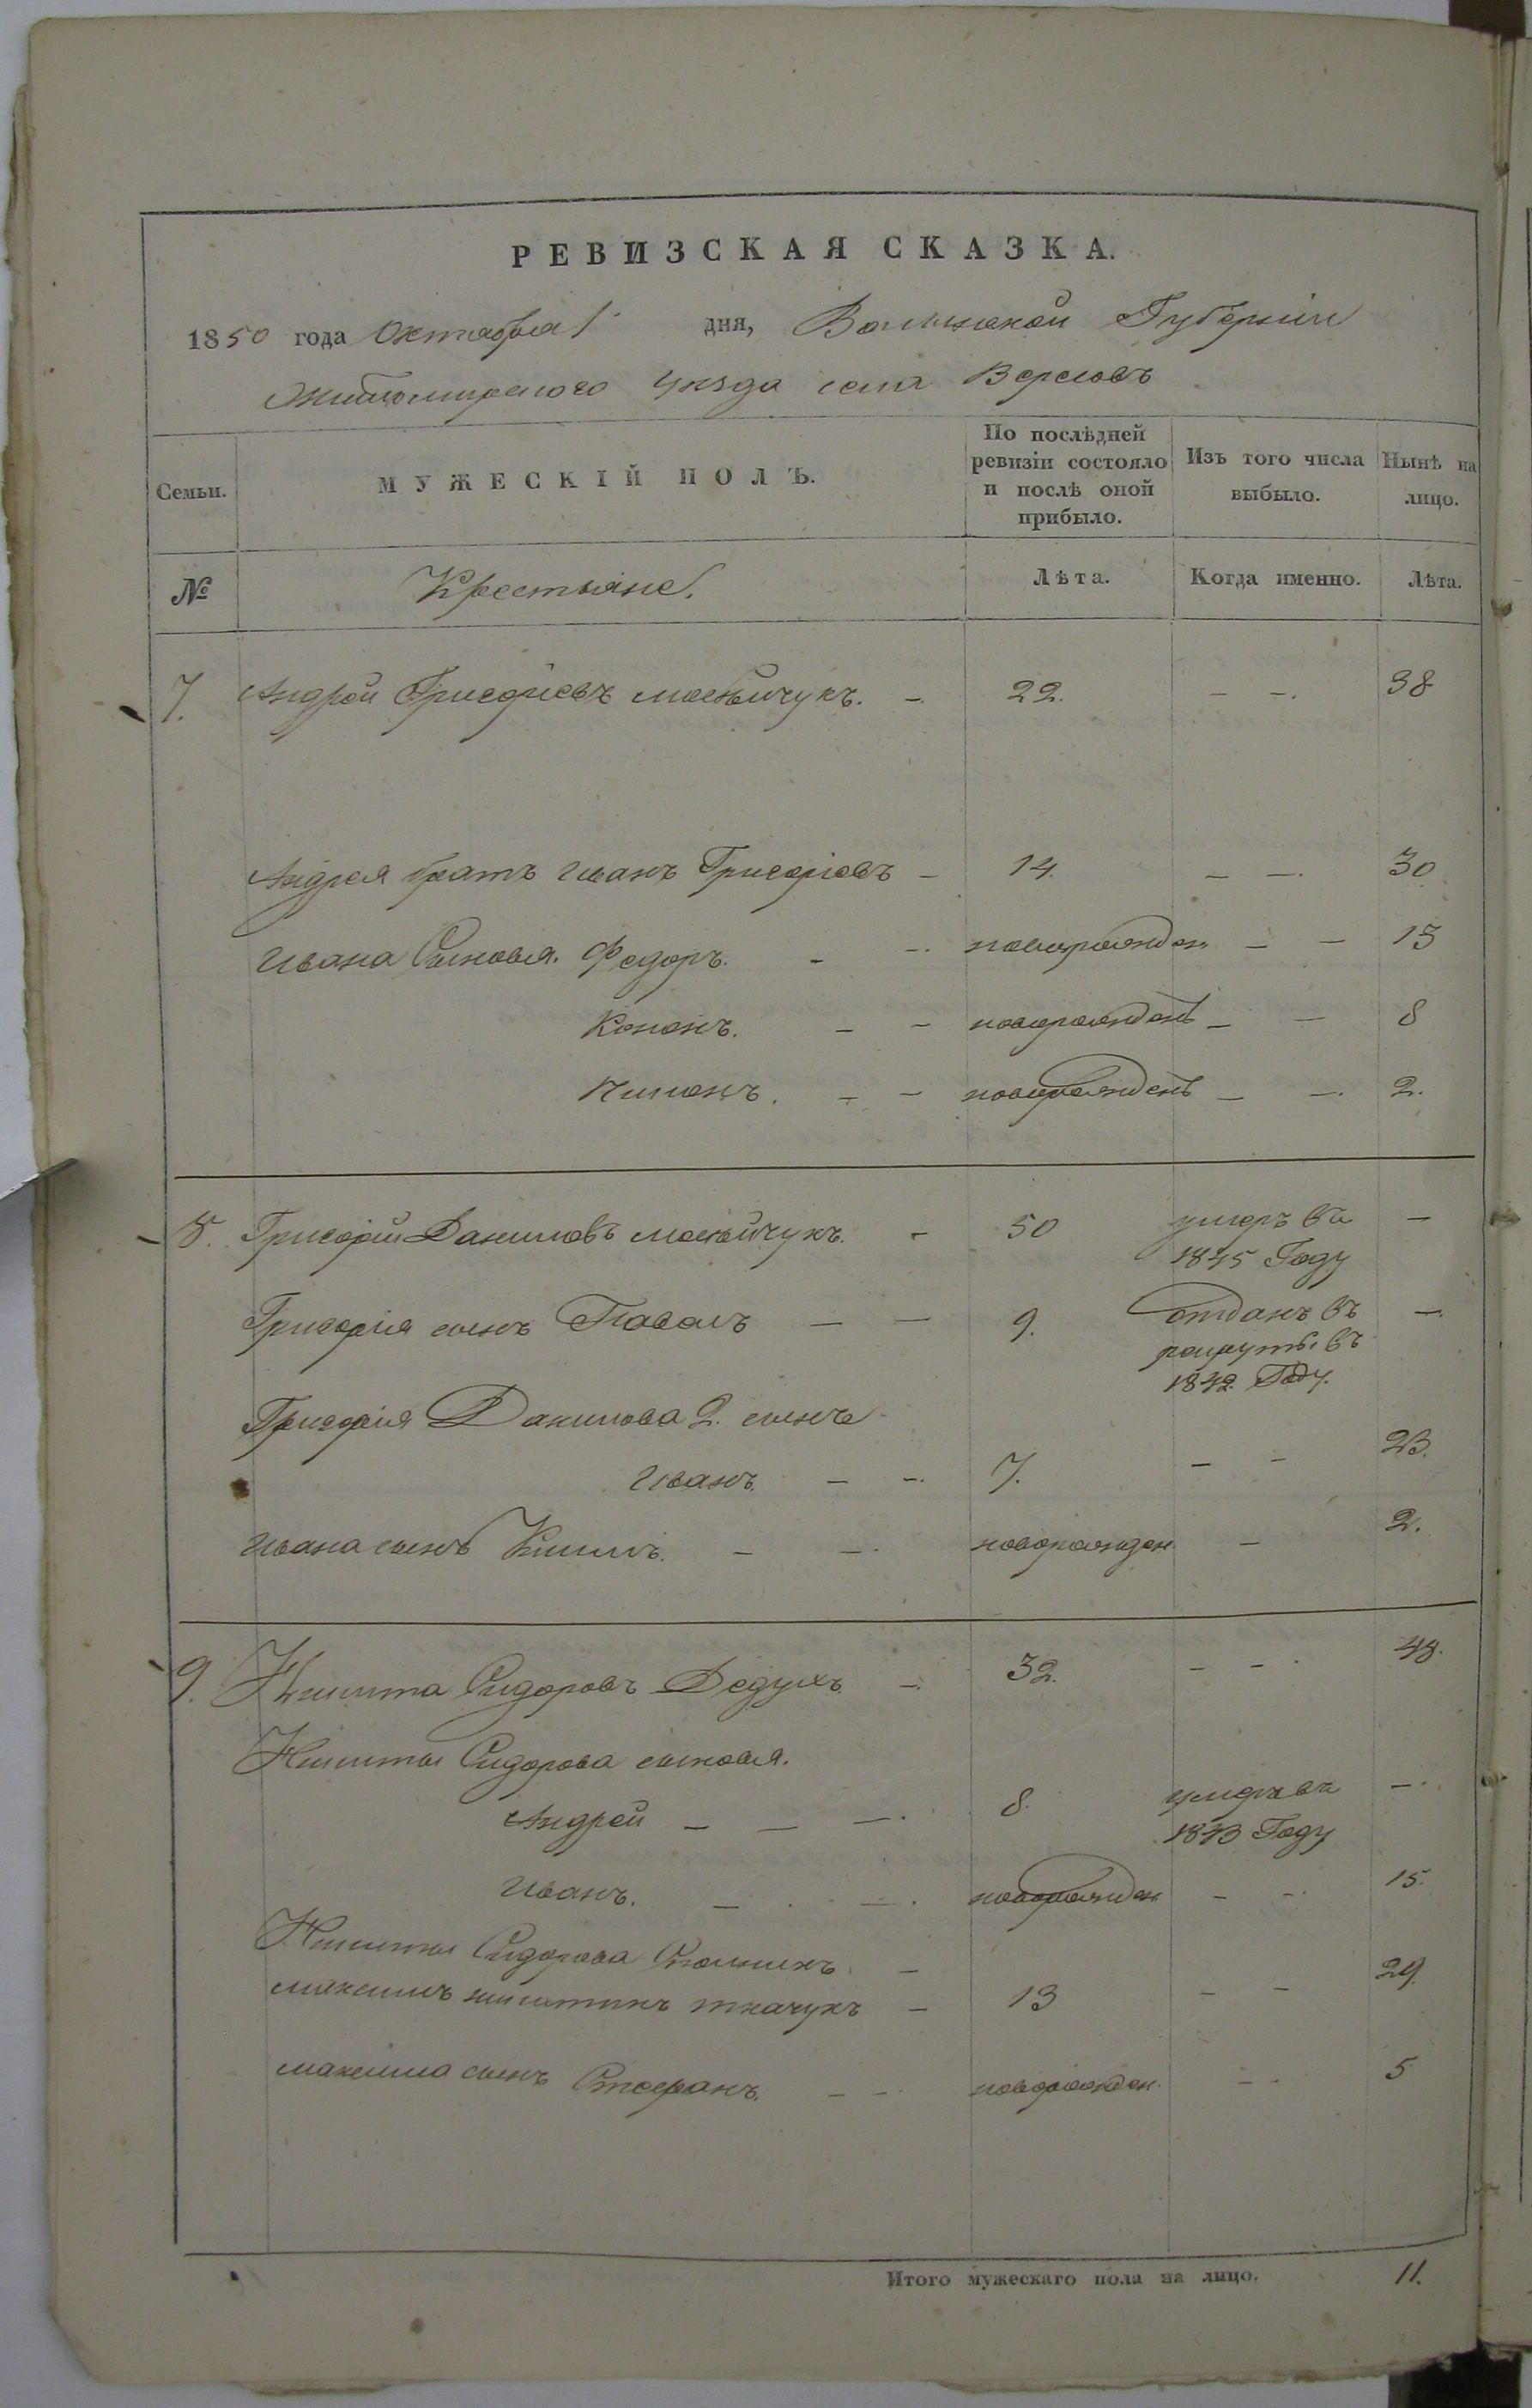 РЕВИЗСКАЯ СКАЗКА.
1850 года Октября 1 дня, Волынской Губернии
Житомирского Уезда села Вересовъ
Семьи. МУЖЕСКІЙ ПОЛЪ. По послѣдней ревизіи состояло и послѣ оной прибыло. Изъ того числа выбыло. Нынѣ на лицо.
№ Крестьяне. Лѣта. Когда именно. Лѣта.
7. Андрей Григорiевъ Мосейчукъ. - 22. - -. 38
Андрея братъ Иванъ Григорiевъ - 14. - -. 30
Ивана Сыновья. Федоръ. - -. новорожден - - 15
Кононъ. - - новорожденъ - - 8
- - новорожденъ - -. 2.
8. Григорiй Даниловъ Мосейчукъ. - 50 умеръ въ -
1845 Году
Григорiя сынъ Павелъ - - 9. отданъ въ -
рекруты въ
1842. Году.
Григорiя Данилова 2. сынъ
Иванъ. - -. 7. - - 23.
Ивана сынъ - -. новорожден. - 2.
9. Никита Сидоровъ Дедухъ. -. 32. - -. 48.
Никиты Сидорова сыновья.
Андрей - - -. 8. умеръ въ -.
1843 Году
Иванъ. - . -. новорожден - -. 15.
Никиты Сидорова -
Максимъ Никитинъ Ткачукъ - 13 - - 29.
Максима сынъ Стефанъ. - -. новорожден. - - 5
Итого мужескаго пола на лицо. 11.